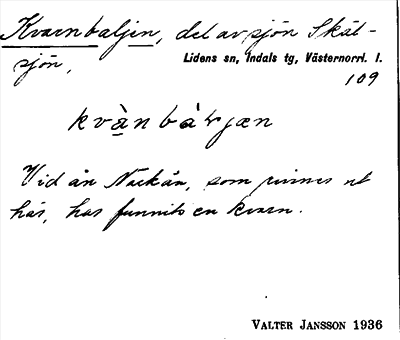 Kvarnbaljen, del av sjön Skäl-
sjön,
Lidens sn, Indals tg, Västernorrl. l.
109
kvànbàljæn
Vid ån Näckån, som rinner ut
här, har funnits en kvarn.
VALTER JANSSON 1936